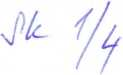 SK 1/4